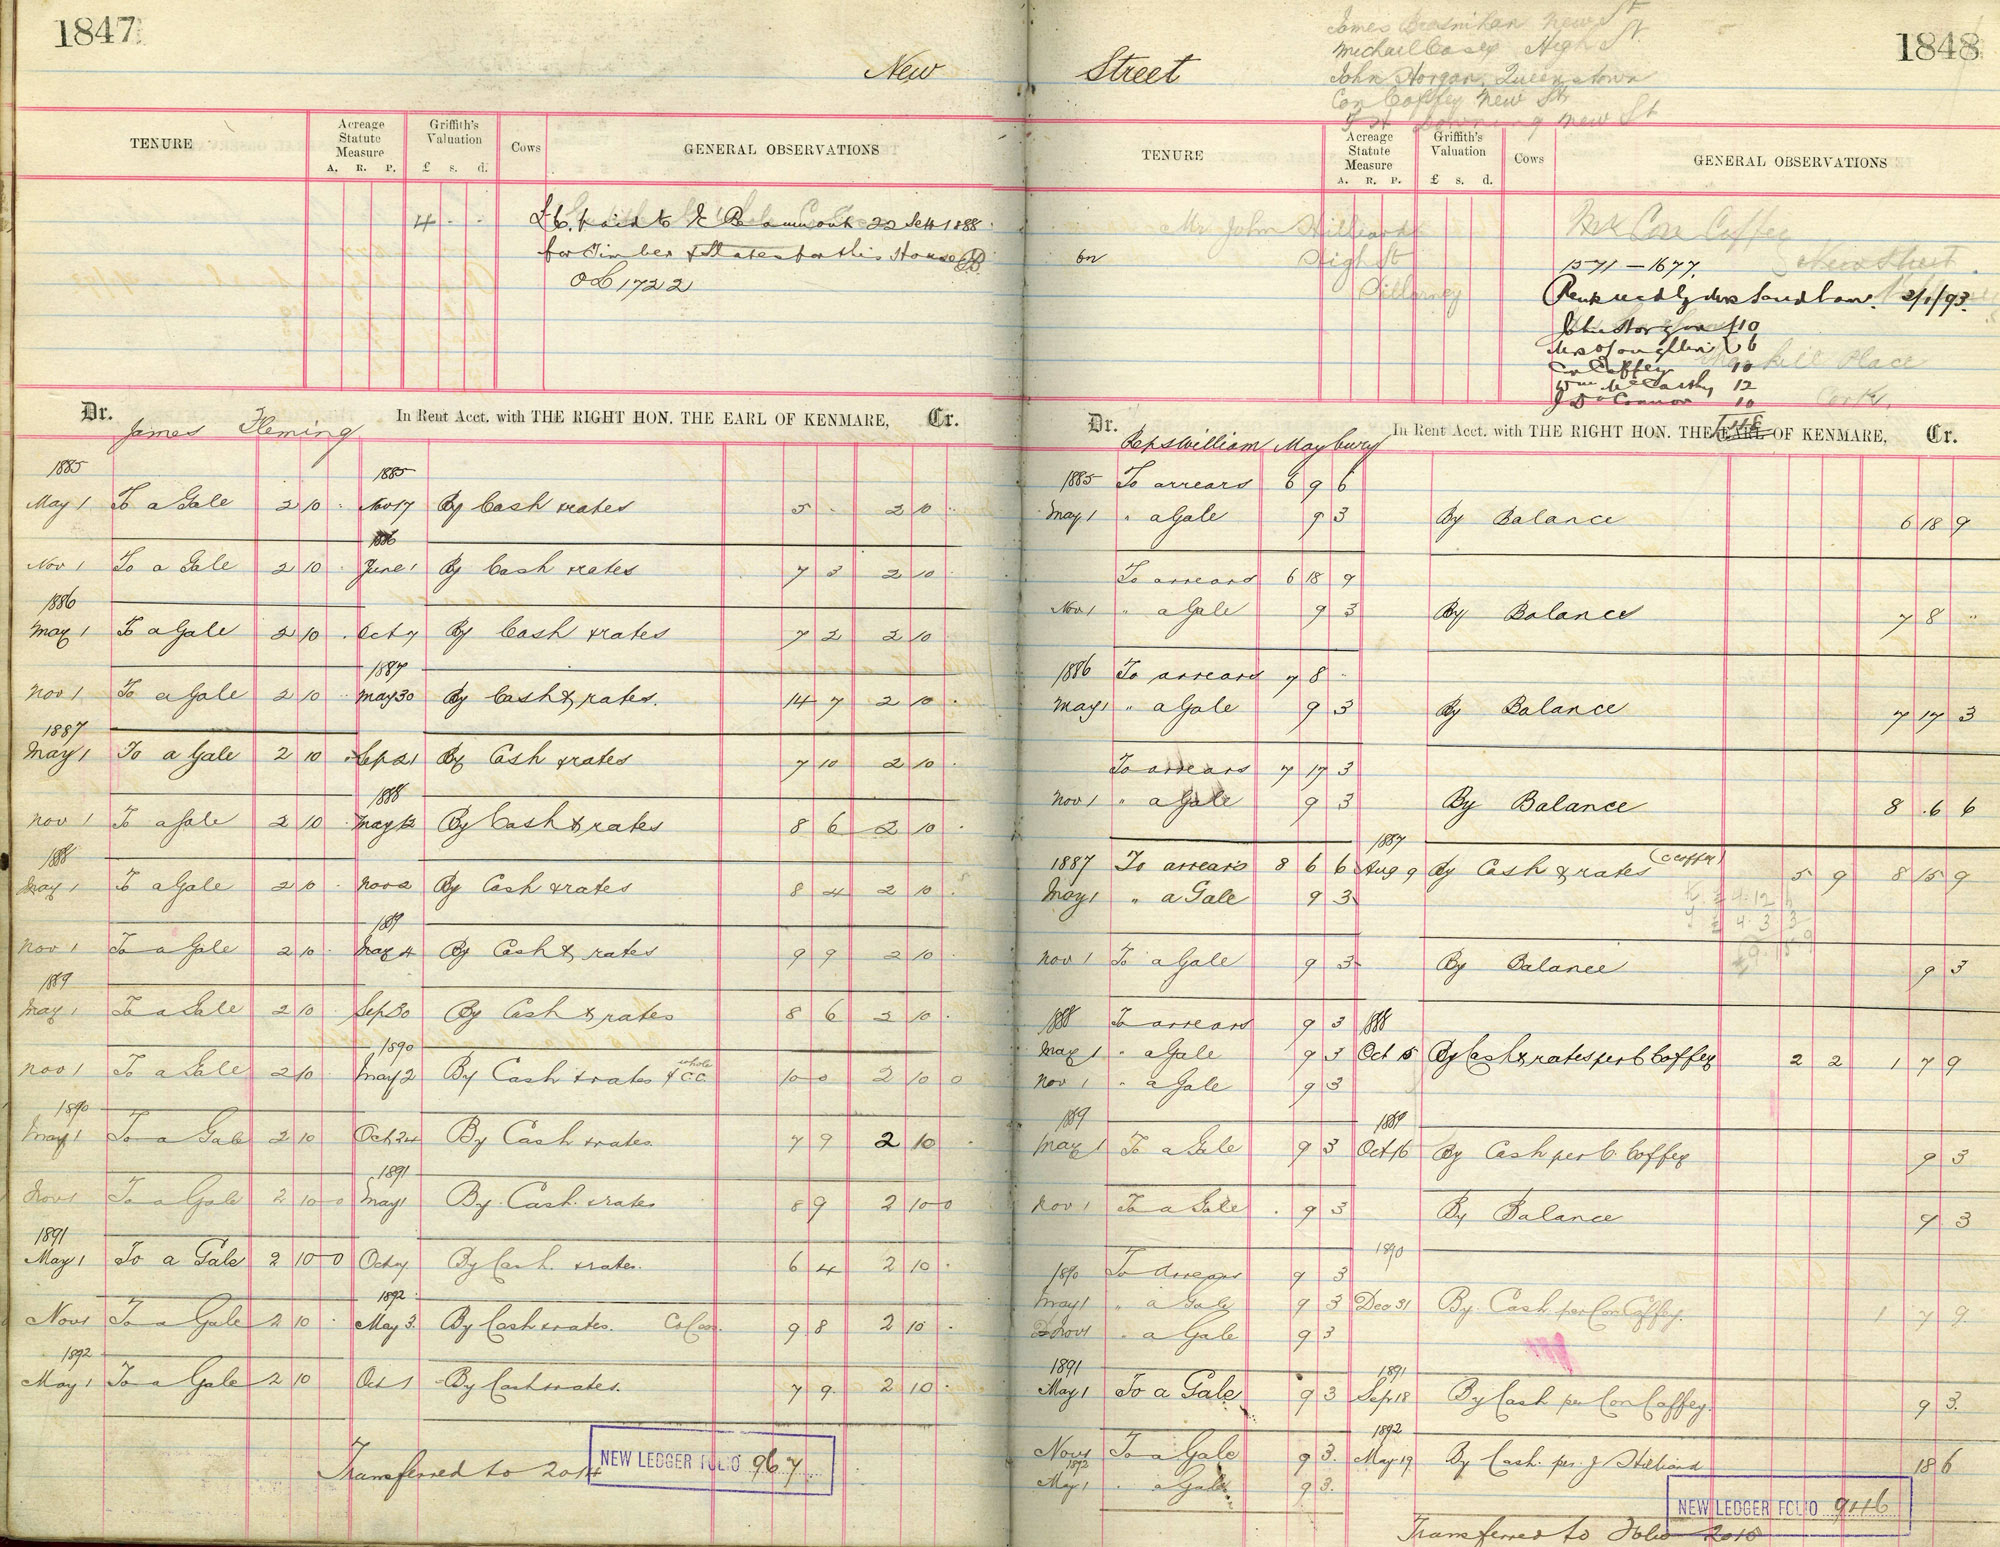 1847
New
TENURE
Acreage Statute Measure
A. R. P.
Griffith's Valuation
£ s. d.
Cows
GENERAL OBSERVATIONS
4 - -
22 Sept 1888
for Timber & Slates for this House
OL 1722
Dr. James Fleming In Rent Acct. with THE RIGHT HON. THE EARL OF KENMARE, Cr.
1885 1885
May 1 To a Gale 2 10 - Nov 17 By Cash & rates 5 - 2 10 -
1886
Nov 1 To a Gale 2 10 - June 1 By Cash & rates 7 3 2 10 -
1886
May 1 To a Gale 2 10 - Oct 7 By Cash & rates 7 2 2 10
1887
Nov 1 To a Gale 2 10 - May 30 By Cash & rates. 14 7 2 10 -
1887
May 1 To a Gale 2 10 - Sep 21 By Cash & rates 7 10 2 10 -
1888
Nov 1 To a Gale 2 10 - May 12 By Cash & rates 8 6 2 10 -
1888
May 1 To a Gale 2 10 - Nov 2 By Cash & rates 8 4 2 10 -
1889
Nov 1 To a Gale 2 10 - May 4 By Cash & rates 9 9 2 10 -
1889
May 1 To a Gale 2 10 - Sep 30 By Cash & rates 8 6 2 10 -
1890
Nov 1 To a Gale 2 10 May 2 By Cash & rates & whole C.C. 10 0 2 10 0
1890
May 1 To a Gale 2 10 Oct 24 By Cash & rates. 7 9 2 10 -
1891
Nov 1 To a Gale 2 10 0 May 1 By Cash & rates 8 9 2 10 0
1891
May 1 To a Gale 2 10 0 Oct 7 By Cash & rates. 6 4 2 10 -
1892
Nov 1 To a Gale 2 10 - May 3. By Cash & rates. 9 8 2 10 -
1892
May 1 To a Gale 2 10 Oct 1 By Cash & rates. 7 9. 2 10 -
Transferred to 2014
NEW LEDGER FOLIO 967
1848
Street
James Brosnihan New St
Michael Casey High St
John Horgan, Queenstown
Con Coffey New St
New St
TENURE
Acreage Statute Measure
A. R. P.
Griffith's Valuation
£ s. d.
Cows
GENERAL OBSERVATIONS
Mr John Hilliard
High St
Killarney
Coffey
New Street
1571 – 1677.
2/1/93.
John Horgan £10
Mrs O'Loughlin 6
Con Coffey 10
Place
Wm McCarthy 12
Cork.
J D O'Connor 10
Dr. Reps William Maybury In Rent Acct. with THE RIGHT HON. THE EARL OF KENMARE, Cr.
1885 To arrears 6 9 6
May 1 " a Gale 9 3 By Balance 6 18 9
To arrears 6 18 9
Nov 1 " a Gale 9 3 By Balance 7 8 "
1886 To arrears 7 8 -
May 1 " a Gale 9 3 By Balance 7 17 3
To arrears 7 17 3
Nov 1 " a Gale 9 3 By Balance 8 6 6
1887
1887 To arrears 8 6 6 Aug 9 By Cash & rates (C Coffey) 5 9 8 15 9
May 1 " a Gale 9 3
Nov 1 To a Gale 9 3 By Balance 9 3
1888 To arrears 9 3 1888
May 1 " a Gale 9 3 Oct 15 By Cash & rates per C Coffey 2 2 1 7 9
Nov 1 " a Gale 9 3
1889 1889
May 1 To a Gale 9 3 Oct 16 By Cash per C. Coffey 9 3
Nov 1 To a Gale 9 3 By Balance 9 3
1890
1890 To Arrears 9 3
May 1 " a Gale 9 3 Dec 31 By Cash per Con Coffey. 1 7 9
Nov 1 " a Gale 9 3
1891 1891
May 1 To a Gale 9 3 Sep 18 By Cash per Con Coffey. 9 3.
1892
Nov 1 To a Gale 9 3. May 19 By Cash per J Hilliard 18 6
1892
May 1 " a Gale 9 3.
NEW LEDGER FOLIO 946
Transferred to Folio 2015